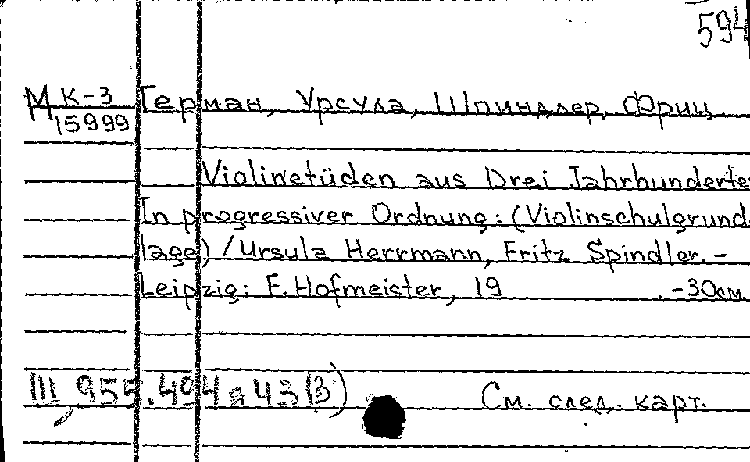 594
М К-3 Герман, Урсула, Шпиндлер, Фриц
15999
Violinetüden aus Drei Jahrhunderte
In progressiver Ordnung: (Violinschulgrund
lage) / Ursula Herrmann, Fritz Spindler. -
Leipzig: F. Hofmeister, 19 . -30см
III 955.494 а 43(3)
См. след. карт.